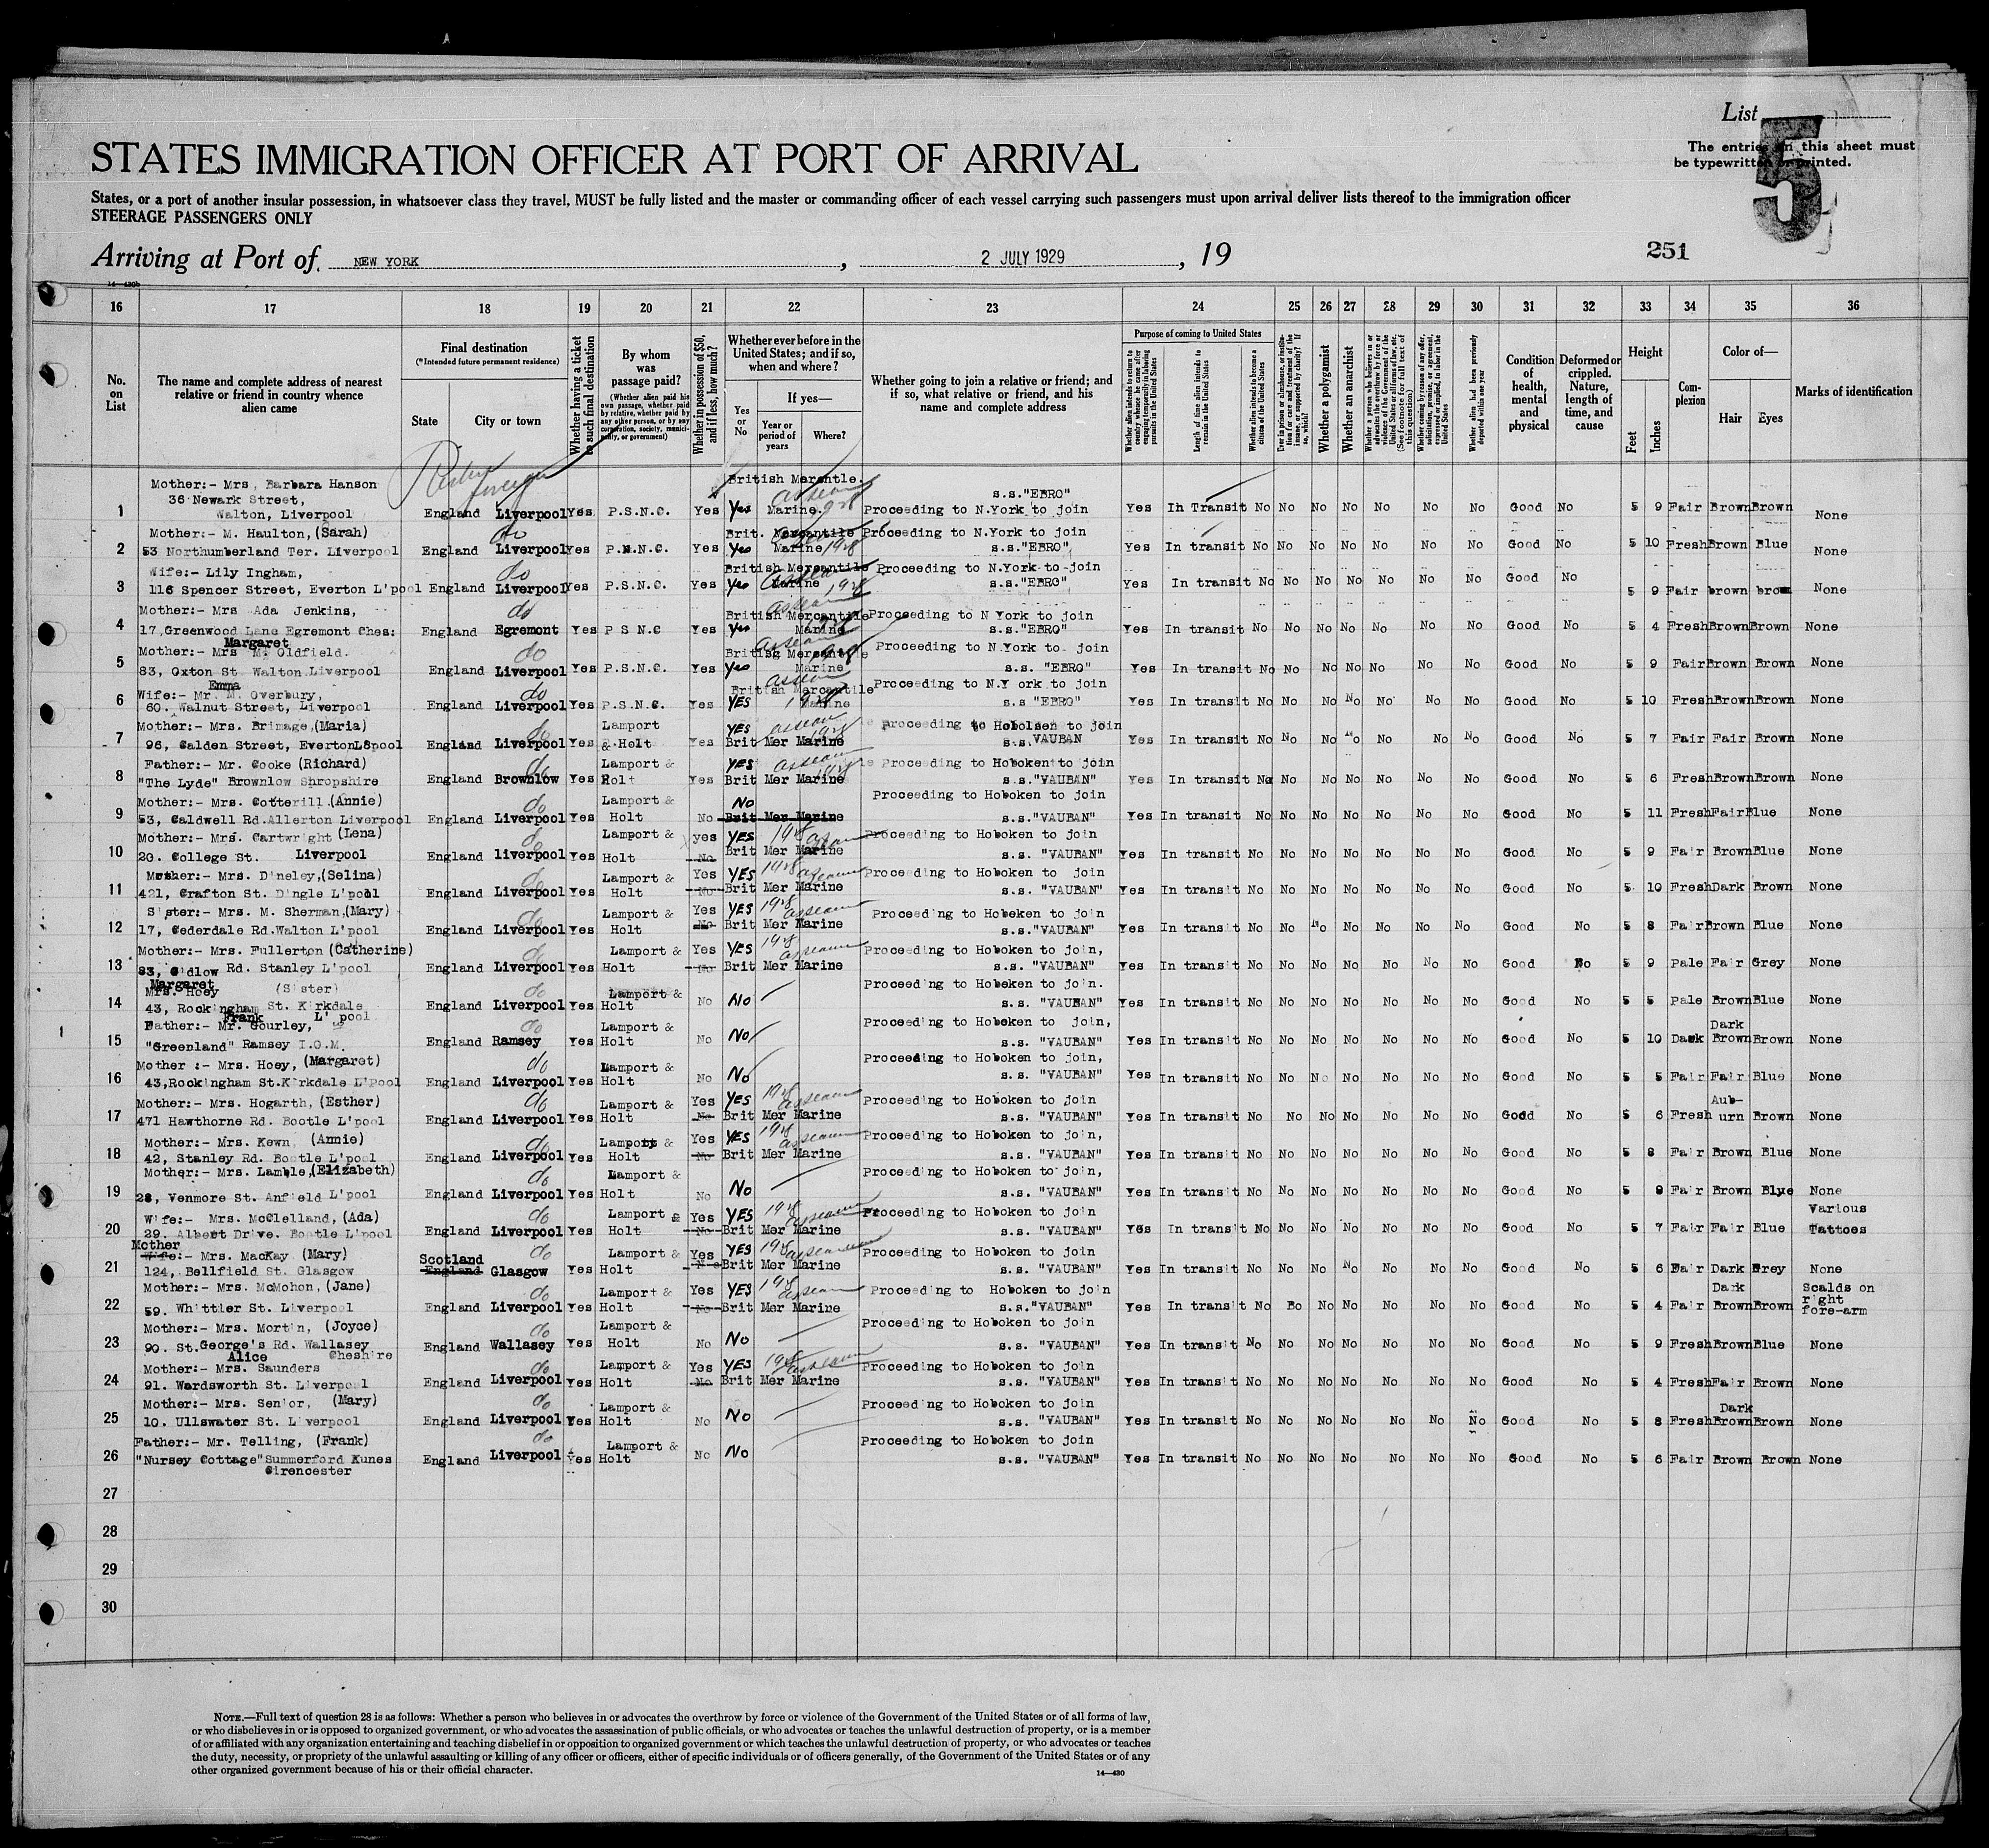 List
5
The entries on this sheet must
be typewritten or printed.
STATES IMMIGRATION OFFICER AT PORT OF ARRIVAL
States, or a port of another insular possession, in whatsoever class they travel, MUST be fully listed and the master or commanding officer of each vessel carrying such passengers must upon arrival deliver lists thereof to the immigration officer
STEERAGE PASSENGERS ONLY
Arriving at Port of NEW YORK , 2 JULY 1929 , 19
251
16 17 18 19 20 21 22 23 24 25 26 27 28 29 30 31 32 33 34 35 36
No. on List
The name and complete address of nearest relative or friend in country whence alien came
Final destination
(*Intended future permanent residence)
State City or town
Whether having a ticket to such final destination
By whom was passage paid?
(Whether alien paid his own passage, whether paid by relative, whether paid by any other person, or by any corporation, society, municipality, or government)
Whether in possession of $50, and if less, how much?
Whether ever before in the United States; and if so, when and where?
Yes or No
If yes—
Year or period of years
Where?
Whether going to join a relative or friend; and if so, what relative or friend, and his name and complete address
Purpose of coming to United States
Whether alien intends to return to country whence he came after engaging temporarily in laboring pursuits in the United States
Length of time alien intends to remain in the United States
Whether alien intends to become a citizen of the United States
Whether a polygamist
Whether an anarchist
Condition of health, mental and physical
Deformed or crippled. Nature, length of time, and cause
Height
Feet Inches
Complexion
Color of—
Hair Eyes
Marks of identification
Mother:- Mrs, Barbara Hanson British Mercntle.
36 Newark Street, s.s."EBRO"
1 Walton, Liverpool England Liverpool Yes P.S.N.C. Yes Yes Marine. Proceeding to N.York to join Yes Ih Transit No No No No No No No Good No 5 9 Fair Brown Brown None
Mother:- M. Haulton, (Sarah) do Brit. Mercantile Proceeding to N.York to join
2 53 Northumberland Ter. Liverpool England Liverpool Yes P.N.N.C. Yes Yes Marine 1928 s.s."EBRO" Yes In transit No No No No No No No Good No 5 10 Fresh Brown Blue None
Wife:- Lily Ingham, do British Mercantile Proceeding to N.York to join
3 116 Spencer Street, Everton L'pool England Liverpool Yes P.S.N.C. Yes Yes Marine 1928 s.s."EBRO" Yes In transit No No No No No No No Good No 5 9 Fair brown brown None
Mother:- Mrs Ada Jenkins, do British Mercantile Proceeding to N York to join
4 17,Greenwood Lane Egremont Ches: England Egremont Yes P S N.C Yes Yes Marine s.s."EBRO" Yes In transit No No No No No No No Good No 5 4 Fresh Brown Brown None
Margaret
Mother:- Mrs M. Oldfield. do British Mercantile Proceeding to N.York to join
5 83, Oxton St Walton Liverpool England Liverpool Yes P.S.N.C. Yes Yes Marine s.s. "EBRO" Yes In transit No No No No No No No Good No 5 9 Fair Brown Brown None
Emma
Wife:- Mr. M. Overbury, do British Mercantile Proceeding to N.Y ork to join
6 60. Walnut Street, Liverpool England Liverpool Yes P.S.N.C. Yes YES Marine s.s "EBRO" Yes In transit No No No No No No No Good No 5 10 Fresh Brown Brown None
Mother:- Mrs. Brimage,(Maria) do Lamport YES Proceeding to Hobolsen to join
7 96, Calden Street, Everton L'pool England Liverpool Yes & Holt Yes Brit Mer Marine s.s.VAUBAN Yes In transit No No No No No No No Good No 5 7 Fair Fair Brown None
Father:- Mr. Cooke (Richard) do Lamport & YES Proceeding to Hoboken to join
8 "The Lyde" Brownlow Shropshire England Brownlow Yes Holt Yes Brit Mer Marine s.s."VAUBAN" Yes In transit No No No No No No No Good No 5 6 Fresh Brown Brown None
Mother:- Mrs. Cotterill (Annie) do Lamport & No Proceeding to Hoboken to join
9 53, Caldwell Rd.Allerton Liverpool England Liverpool Yes Holt No Brit Mer Marine s.s."VAUBAN" Yes In transit No No No No No No No Good No 5 11 Fresh Fair Blue None
Mother:- Mrs. Cartwright (Lena) do Lamport & yes YES 1928 Proceeding to Hoboken to join
10 20. College St. Liverpool England liverpool Yes Holt No Brit Mer Marine s.s. "VAUBAN" Yes In transit No No No No No No No Good No 5 9 Fair Brown Blue None
Mother:- Mrs. Dineley,(Selina) do Lamport & Yes YES 1928 Proceeding to Hoboken to join
11 421, Grafton St. Dingle L'pool England Liverpool Yes Holt No Brit Mer Marine s.s. "VAUBAN" Yes In transit No No No No No No No Good No 5 10 Fresh Dark Brown None
Sister:- Mrs. M. Sherman,(Mary) do Lamport & Yes YES 1928 Proceeding to Hoboken to join
12 17, Cederdale Rd.Walton L'pool England Liverpool Yes Holt No Brit Mer Marine s.s."VAUBAN" Yes In transit No No No No No No No Good No 5 8 Fair Brown Blue None
Mother:- Mrs. Fullerton (Catherine) do Lamport & Yes YES 1928 Proceeding to Hoboken to join,
13 83, Gidlow Rd. Stanley L'pool England Liverpool Yes Holt No Brit Mer Marine s.s. "VAUBAN" Yes In transit No No No No No No No Good No 5 9 Pale Fair Grey None
Margaret
Mrs. Hoey (Sister) do Lamport & Proceeding to Hoboken to join.
14 43, Rockingham St. Kirkdale L' pool England Liverpool Yes Holt No No s.s. "VAUBAN" Yes In transit No No No No No No No Good No 5 5 Pale Brown Blue None
Frank
Father:- Mr. Gourley, do Lamport & Proceeding to Hoboken to join, Dark
15 "Greenland" Ramsey I.O.M. England Ramsey Yes Holt No No s.s. "VAUBAN" Yes In transit No No No No No No No Good No 5 10 Dark Brown Brown None
Mother :- Mrs. Hoey, (Margaret) do Lamport & Proceeding to Hoboken to join,
16 43,Rockingham St.Kirkdale L'Pool England Liverpool Yes Holt No No s.s. "VAUBAN" Yes In transit No No No No No No No Good No 5 5 Fair Fair Blue None
Mother:- Mrs. Hogarth, (Esther) do Lamport & Yes YES 1928 Proceeding to Hoboken to join Aub-
17 471 Hawthorne Rd. Bootle L'pool England Liverpool Yes Holt No Brit Mer Marine s.s. "VAUBAN" Yes In transit No No No No No No No Good No 5 6 Fresh urn Brown None
Mother:- Mrs. Kewn (Annie) do Lamport & Yes YES 1928 Proceeding to Hoboken to join,
18 42, Stanley Rd. Bootle L'pool England Liverpool Yes Holt No Brit Mer Marine s.s. "VAUBAN" Yes In transit No No No No No No No Good No 5 8 Fair Brown Blue None
Mother:- Mrs. Lamble,(Elizabeth) do Lamport & Proceeding to Hoboken to join,
19 28, Venmore St. Anfield L'pool England Liverpool Yes Holt No No s.s. "VAUBAN" Yes In transit No No No No No No No Good No 5 8 Fair Brown Blue None
Wife:- Mrs. McClelland, (Ada) do Lamport & Yes YES 1928 Proceeding to Hoboken to join Various
20 29. Albert Drive. Bootle L'pool England Liverpool Yes Holt No Brit Mer Marine s.s. "VAUBAN" Yes In transit No No No No No No No Good No 5 7 Fair Fair Blue Tattoes
Mother
Wife:- Mrs. MacKay (Mary) Scotland do Lamport & Yes YES 1928 Proceeding to Hoboken to join
21 124, Bellfield St. Glasgow England Glasgow Yes Holt No Brit Mer Marine s.s. "VAUBAN" Yes In transit No No No No No No No Good No 5 6 Fair Dark Grey None
Mother:- Mrs. McMohon, (Jane) do Lamport & Yes YES 1928 Proceeding to Hoboken to join Dark Scalds on
22 59. Whittier St. Liverpool England Liverpool Yes Holt No Brit Mer Marine s.s."VAUBAN" Yes In transit No Bo No No No No No Good No 5 4 Fair Brown Brown right fore-arm
Mother:- Mrs. Mortin, (Joyce) do Lamport & Proceeding to Hoboken to join
23 90. St.George's Rd. Wallasey Cheshire England Wallasey Yes Holt No No s.s. "VAUBAN" Yes In transit No No No No No No No Good No 5 9 Fresh Brown Blue None
Alice
Mother:- Mrs. Saunders do Lamport & Yes YES 1928 Proceeding to Hoboken to join
24 91. Wardsworth St. Liverpool England Liverpool Yes Holt No Brit Mer Marine s.s. "VAUBAN" Yes In transit No No No No No No No Good No 5 4 Fresh Fair Brown None
Mother:- Mrs. Senior, (Mary) do Lamport & Proceeding to Hoboken to join Dark
25 10. Ullswater St. Liverpool England Liverpool Yes Holt No No s.s. "VAUBAN" Yes In transit No No No No No No No Good No 5 8 Fresh Brown Brown None
Father:- Mr. Telling, (Frank) do Lamport & Proceeding to Hoboken to join
26 "Nursey Cottage"Summerford Kunes England Liverpool Yes Holt No No s.s. "VAUBAN" Yes In transit No No No No No No No Good No 5 6 Fair Brown Brown None
Cirencester
27
28
29
30
NOTE.—Full text of question 28 is as follows: Whether a person who believes in or advocates the overthrow by force or violence of the Government of the United States or of all forms of law,
or who disbelieves in or is opposed to organized government, or who advocates the assassination of public officials, or who advocates or teaches the unlawful destruction of property, or is a member
of or affiliated with any organization entertaining and teaching disbelief in or opposition to organized government or which teaches the unlawful destruction of property, or who advocates or teaches
the duty, necessity, or propriety of the unlawful assaulting or killing of any officer or officers, either of specific individuals or of officers generally, of the Government of the United States or of any
other organized government because of his or their official character.
14—430